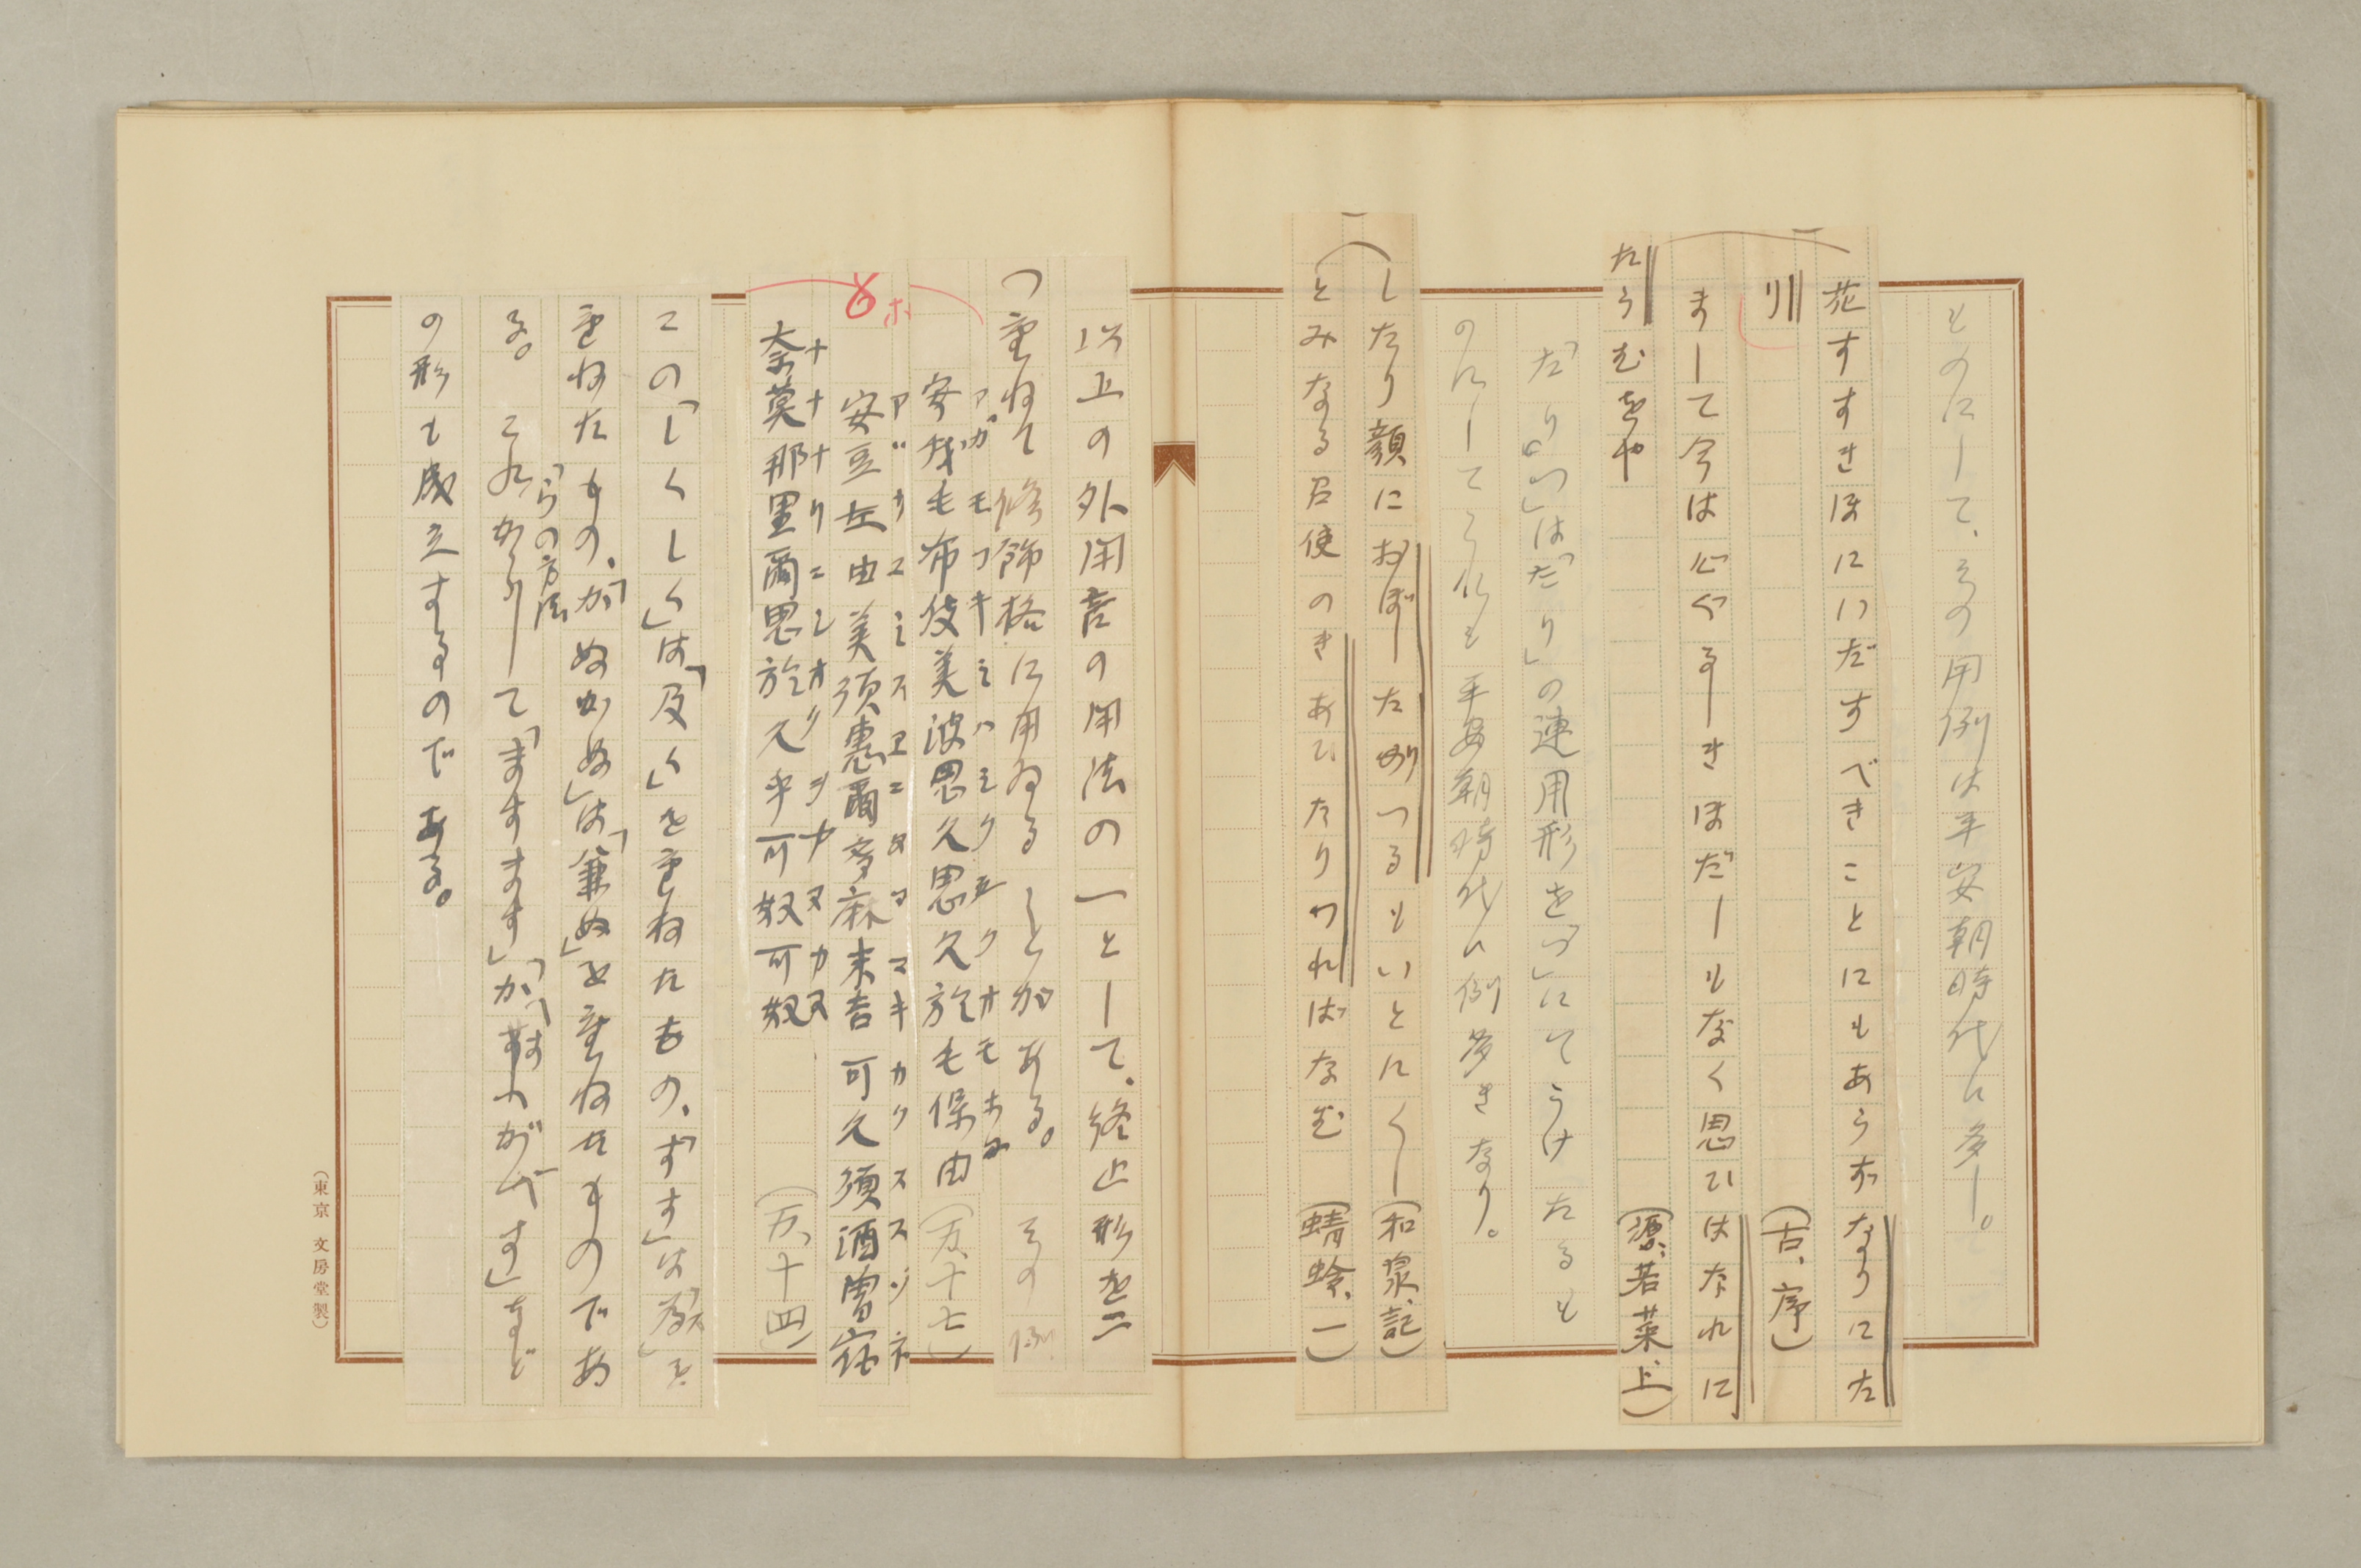 ものにして、その用例は平安朝時代に多し。
花すすきほにいだすべきことにもあらずなりにた
り　（古、序）
まして今は心ぐるしきほだしもなく思ひはなれに
たらむをや　（源、若菜、上）
「たり「つ」は「たり」の連用形を「つ」にてうけたるも
のにしてこれも平安朝時代に例多きなり。
したり顔におぼしたりつるもいとにくし（和泉、記）
とみなる召使のきあひたりつればなむ（蜻蛉、一）
以上の外用言の用法の一として、終止形を二
つ重ねて修飾格に用ゐることがある。その例
安我毛布伎美波思久思久於毛保由（万、十七）
アガモフキミハシクシクオモホユ
安豆左由美須惠爾多麻末吉可久須酒曽宿
アヅサユミスヱニタママキカクススゾネ
奈莫那里爾思於久乎可奴可奴（万、十四）
ナナナリニシオクヲカヌカヌ
ホ
この「しくしく」は「及く」を重ねたもの、「すす」は「為」を
重ねたもの、「かぬかぬ」は「兼ぬ」を重ねたものであ
る。これらの方法からして「ますます」「かへすがへす」など
の形も成立するのである。
（東京　文房堂製）